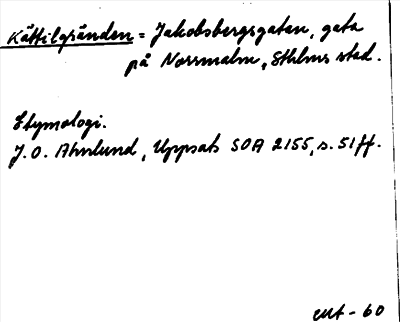 Kättilgränden = Jakobsbergsgatan, gata
på Norrmalm, Sthlms stad.
Etymologi.
J.O. Ahnlund, Uppsats SOA 2155, s. 51 ff.
- 60